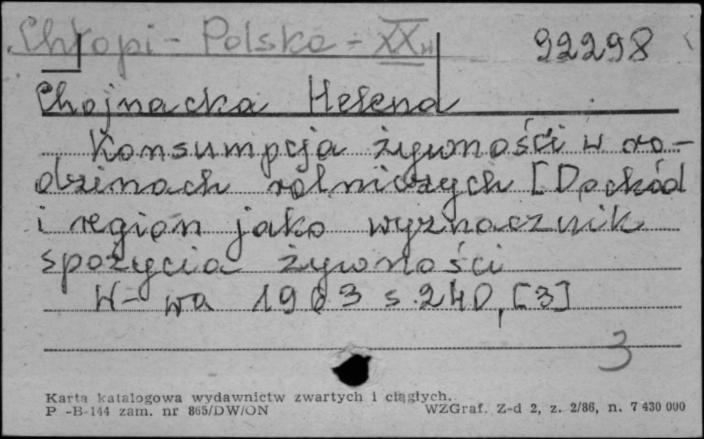 Chłopi - Polska - XX w
92298
Chojnacka Helena
Konsumpcja żywności w ro-
dzinach rolniczych [Dochód
i region jako wyznacznik
spożycia żywności
W-wa 1963 s. 240, [3]
3
Karta katalogowa wydawnictw zwartych i ciągłych.
P -B-144 zam. nr 865/DW/ON
WZGraf. Z-d 2, z. 2/86, n. 7 430 000